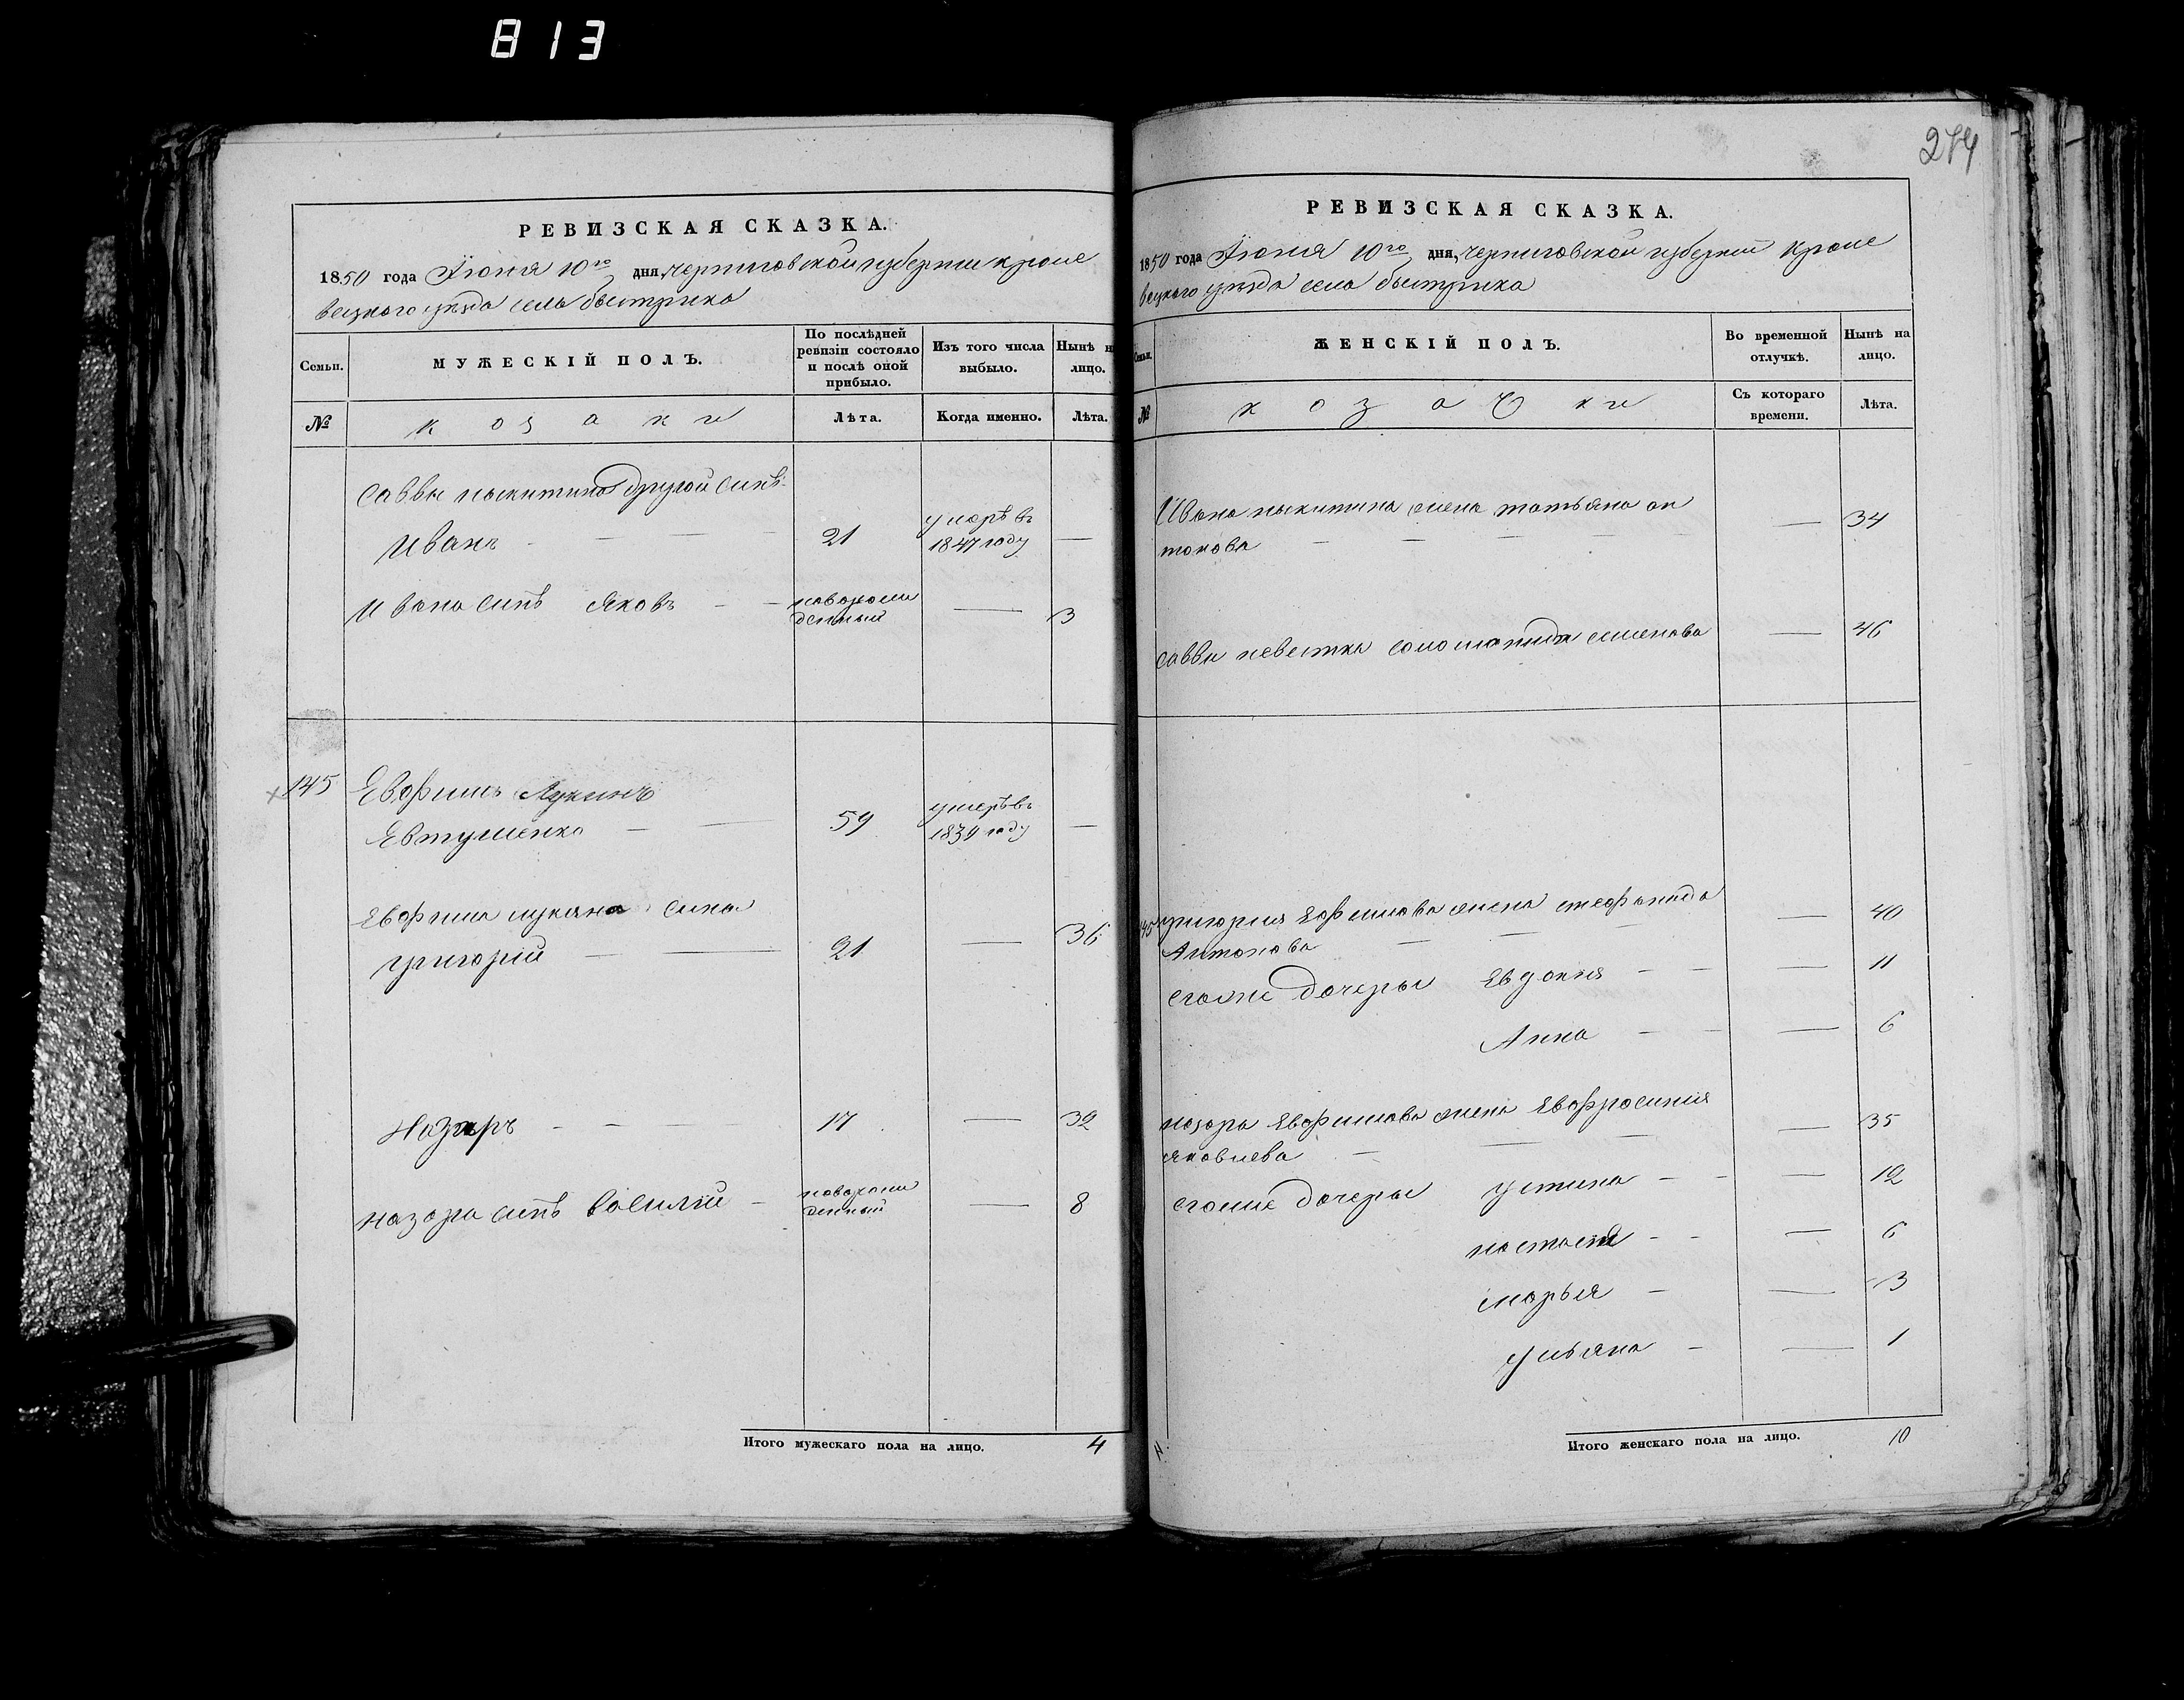 813
274
РЕВИЗСКАЯ СКАЗКА.
1850 года Июня 10го дня, Черниговской губернии кроле
вецкого уезда села быстрика
Семьи.
МУЖЕСКІЙ ПОЛЪ.
По послѣдней ревизіи состояло и послѣ оной прибыло.
Изъ того числа выбыло.
Нынѣ на лицо.
№
козаки
Лѣта.
Когда именно.
Лѣта.
саввы никитина другой синъ
Иванъ 21 умеръ въ 1847 году
Ивана синъ Яковъ новорож денный 3
145 Евфимъ Лукинъ
Евтушенко 59 умеръ въ 1839 году
Евфима лукина сина
григорій 21 36
Назаръ 17 32
назара синъ василій новорож денный 8
Итого мужескаго пола на лицо. 4
РЕВИЗСКАЯ СКАЗКА.
1850 года Июня 10го дня, Черниговской губернии кроле
вецкого уезда села быстрика
Семьи.
ЖЕНСКІЙ ПОЛЪ.
Во временной отлучкѣ.
Нынѣ на лицо.
№
козачки
Съ котораго времени.
Лѣта.
Ивана никитина жена татьяна ан 34
тонова
саввы невестка соломанида семенова 46
145 григория Ефимова жена стефанида 40
Антонова
егоже дочеры Евдокия 11
Анна 6
назара Евфимова жена Евфросиния 35
яковлева
егоже дочеры устина 12
настасия 6
марья 3
ульяна 1
Итого женскаго пола на лицо. 10